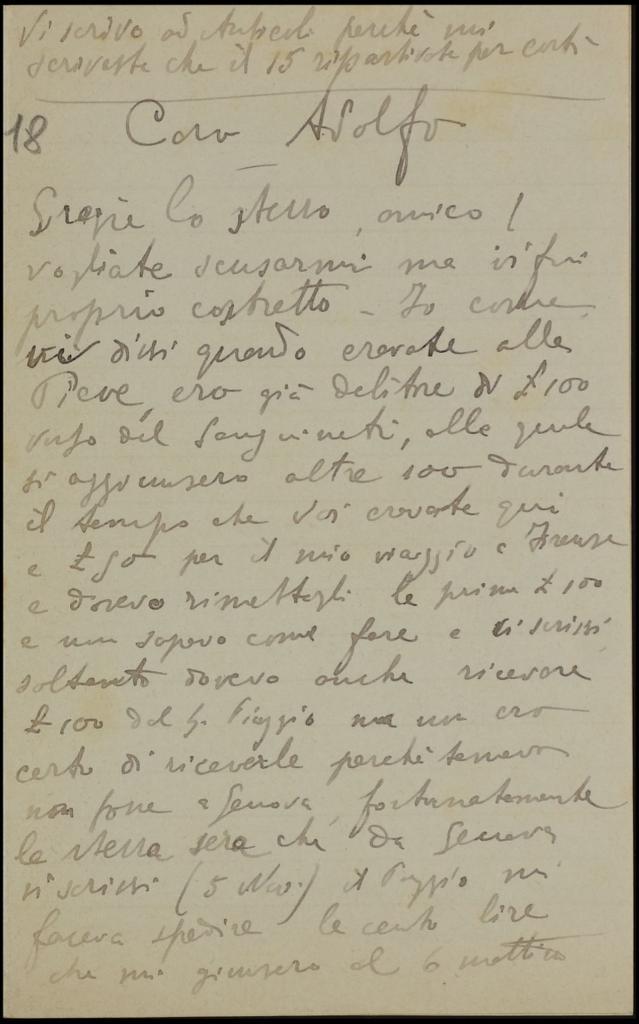 Vi scrivo ad Anticoli perchè mi
scriveste che il 15 ripartivate per costì
18 Caro Adolfo
Grazie lo stesso, amico!
vogliate scusarmi ma vi fui
proprio costretto - Io come
vi dissi quando eravate alla
Pieve, ero già debitore di £ 100
verso del Sanguineti, alle quale
si aggiunsero altre 100 durante
il tempo che voi eravate qui
e £ 50 per il mio viaggio a Firenze
e dovevo rimettergli le prime £ 100
e non sapevo come fare e vi scrissi
soltanto dovevo anche ricevere
£ 100 dal S. Piaggio ma non ero
certo di riceverle perchè temevo
non fosse a Genova, fortunatamente
la stessa sera che da Genova
vi scrissi (5 Nov.) il Piaggio mi
faceva spedire le cento lire
che mi giunsero al 6 mattina